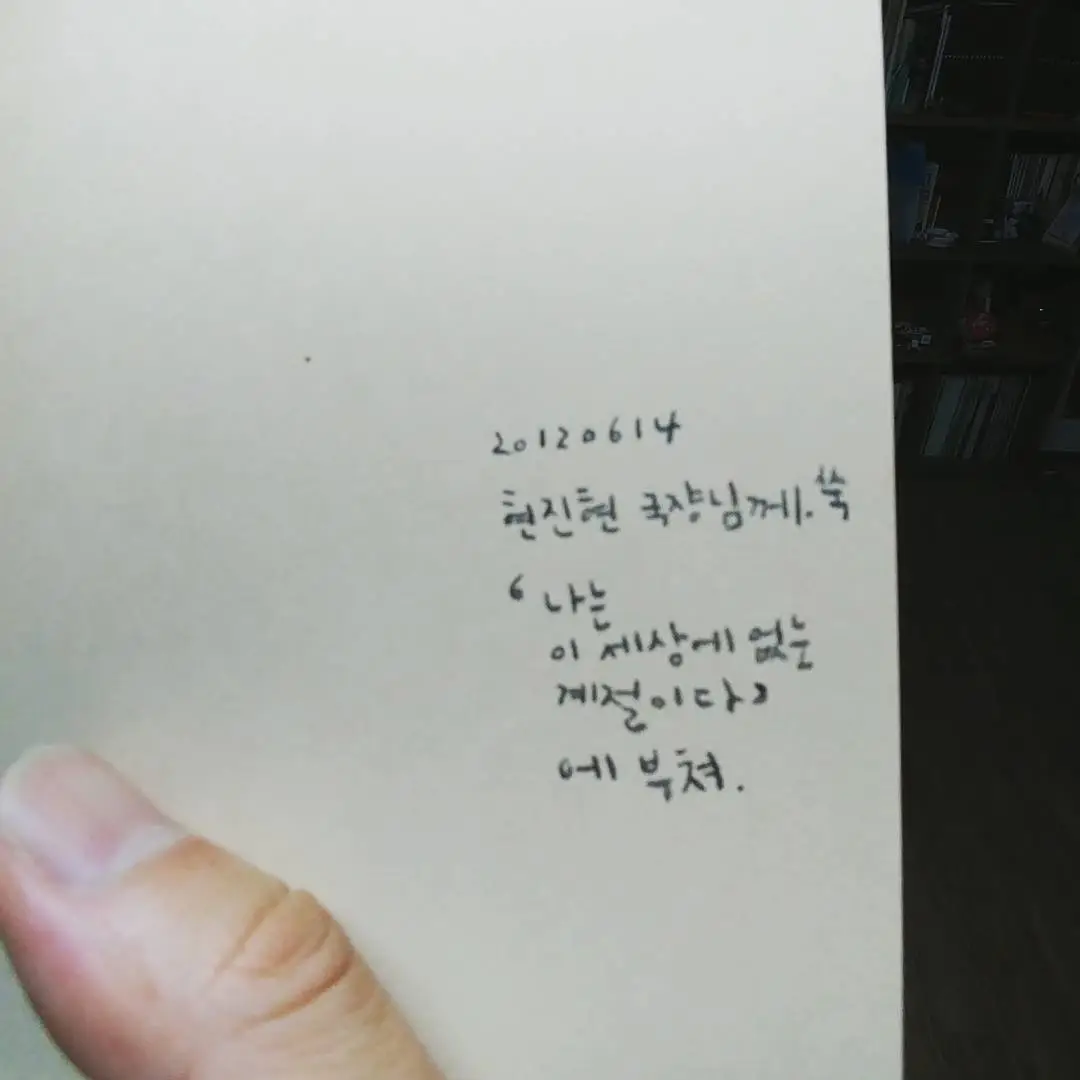 20120614
현진현 국장님께. 쑥
‘나는
이 세상에 없는
계절이다’
에 부쳐.